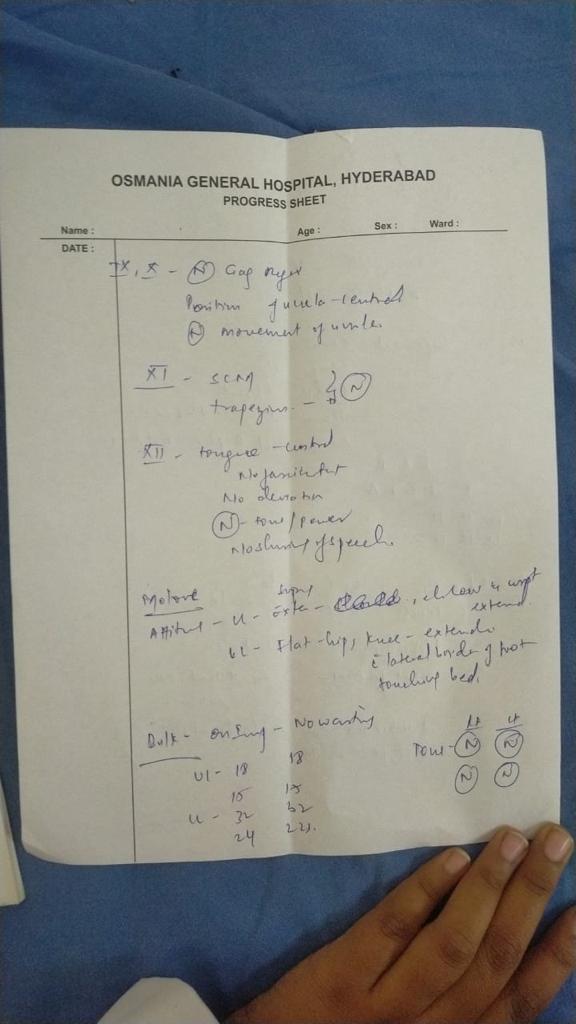 OSMANIA GENERAL HOSPITAL, HYDERABAD
PROGRESS SHEET
Name : Age : Sex : Ward :
DATE :
IX, X - N Gag
Position of uvula - central
N movement of uvula
XI - SCM
trapezius - N
XII - tongue - central
No
No deviation
N - tone / power
No slurring of speech
Motor
Attitude - UL - , elbow & wrist
extend
LL - Flat - hip, knee - extended
lateral border of foot
touching bed.
Bulk - on - No wasting
UL - 18 18
15 15
LL - 32 32
24
Tone - N N
N N